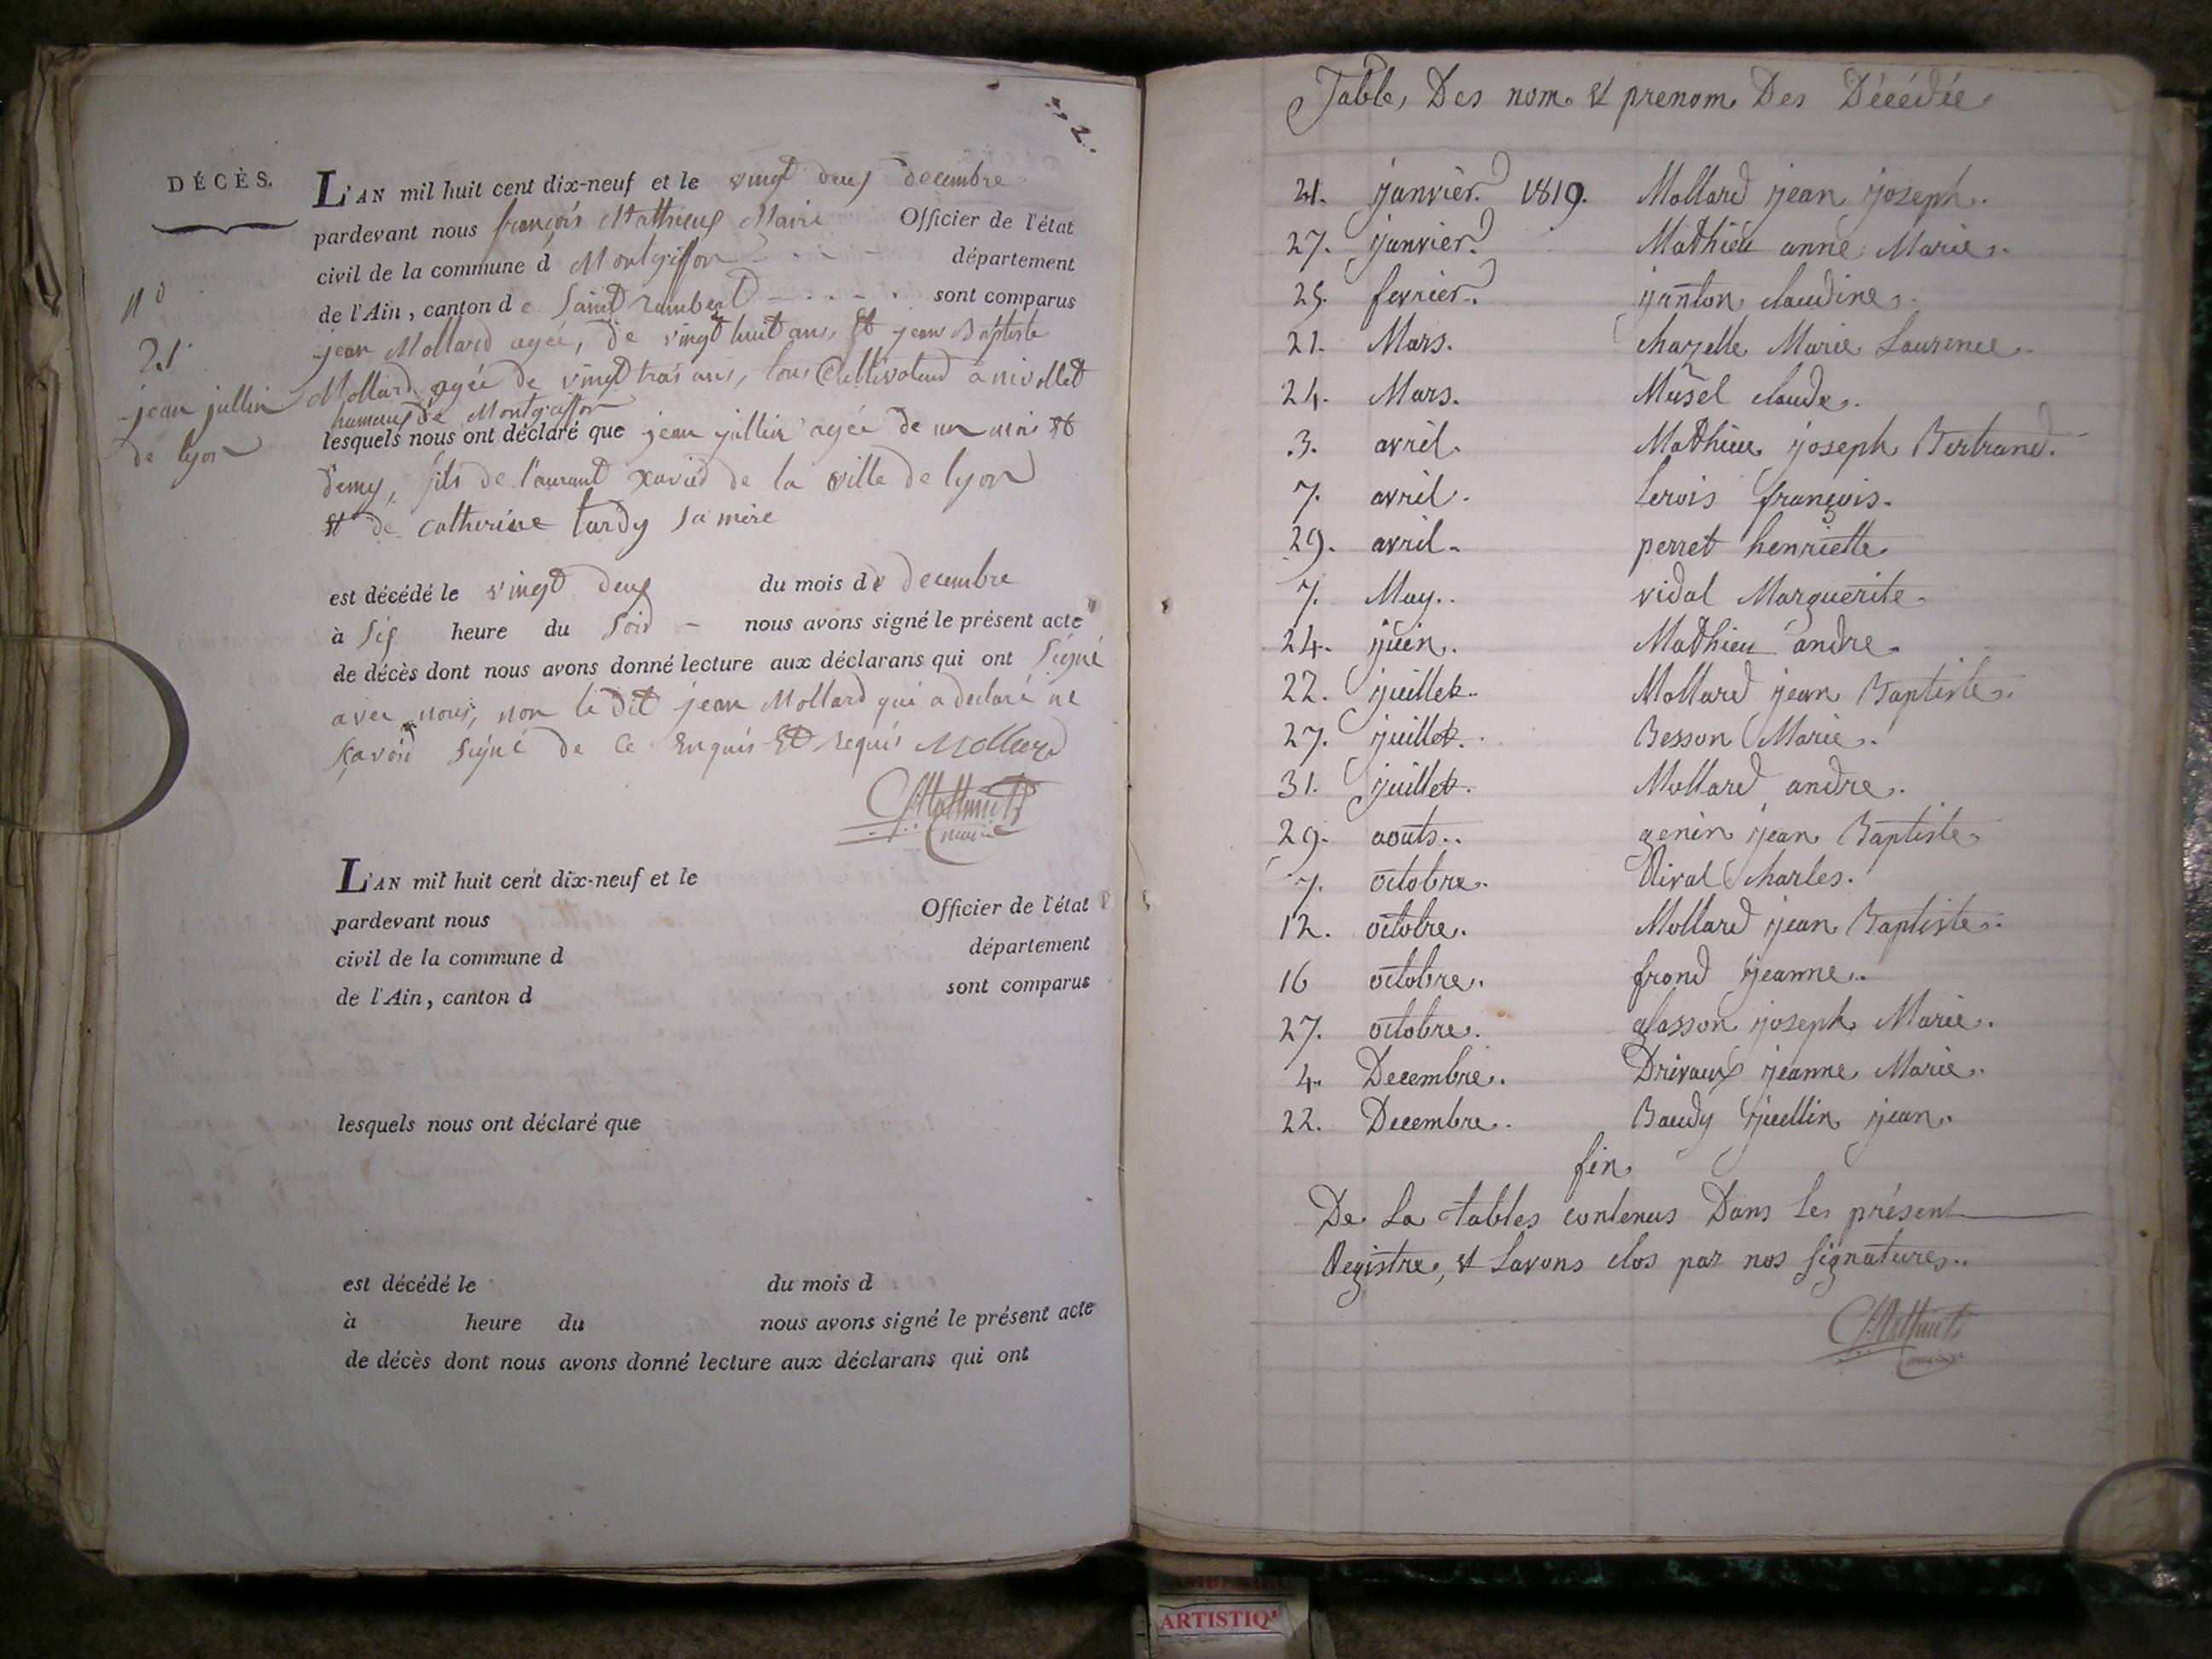 DÉCÈS.
L'AN mil huit cent dix-neuf et le vingt deux decembre
pardevant nous françois Matthieux Maire Officier de l'état
civil de la commune d Montgriffon département
de l'Ain, canton d e Saint rambert sont comparus
jean Mollard agée, de vingt huit ans, Et jean Baptiste
Mollard agée de vingt trois ans, tous Cultivateurd a nivollet
hameux de Montgriffon
n°
21
jean jullin
de lyon
lesquels nous ont déclaré que jean jullin agée de un mois Et
demy, fils de l'aurant xavied de la ville de lyon
Et de catherine tardy sa mère
est décédé le vingt deux du mois de decembre
à six heure du soid nous avons signé le présent acte
de décès dont nous avons donné lecture aux déclarans qui ont Signé
avec nous, non le dit jean Mollard qui a declaré ne
sçavoid signé de ce Enquis Et requis Mollard
Matthieux
maire
L'AN mil huit cent dix-neuf et le
pardevant nous Officier de l'état
civil de la commune d département
de l'Ain, canton d sont comparus
lesquels nous ont déclaré que
est décédé le du mois d
à heure du nous avons signé le présent acte
de décès dont nous avons donné lecture aux déclarans qui ont
Table, Des nom & prenom Des Décédée
21. janvier. 1819. Mollard jean joseph.
27. janvier. Mathieu anne Marie.
25. fevrier. janton claudine.
21. Mars. chazelle Marie Laurence
24. Mars. Musel claude.
3. avril. Mathieu joseph Bertrand.
7. avril. Lerois françois.
29. avril. perret henriette.
7. May. vidal Marguerite.
24. juin. Mathieu andre.
22. juillet. Mollard jean Baptiste.
27. juillet. Besson Marie.
31. juillet. Mollard andre.
29. aouts.. genin jean Baptiste
7. octobre. Rival Charles.
12. octobre. Mollard jean Baptiste.
16 octobre. frond jeanne.
27. octobre. glasson joseph Marie.
4. Decembre. Drivaux jeanne Marie.
22. Decembre. Baudy juellin jean.
fin
De La tables contenus Dans Les présent
Registre, & Lavons clos par nos signatures..
Matthieux
maire
ARTISTIQ